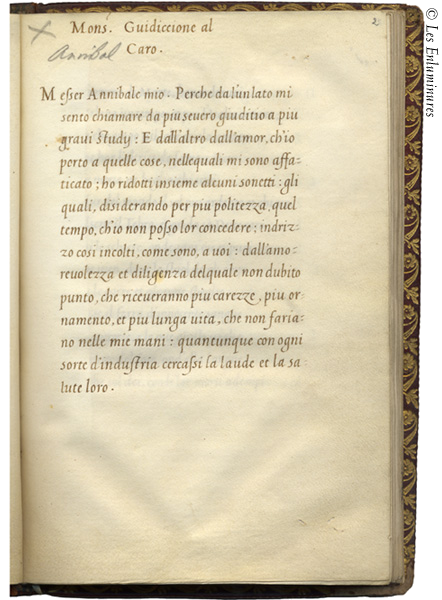 Mons. Guidiccione al
Annibal Caro.
2
Messer Annibale mio. Perche da l'un lato mi
sento chiamare da piu seuero giuditio a piu
graui studij : E dall'altro dall'amor, ch'io
porto a quelle cose, nellequali mi sono affa=
ticato ; ho ridotti insieme alcuni sonetti : gli
quali, disiderando per piu politezza, quel
tempo, ch'io non posso lor concedere ; indriz=
zo cosi incolti, come sono, a uoi : dall'amo=
reuolezza et diligenza delquale non dubito
punto, che riceueranno piu carezze, piu or=
namento, et piu lunga uita, che non faria=
no nelle mie mani : quantunque con ogni
sorte d'industria cercassi la laude et la sa=
lute loro .
© Les Enluminures